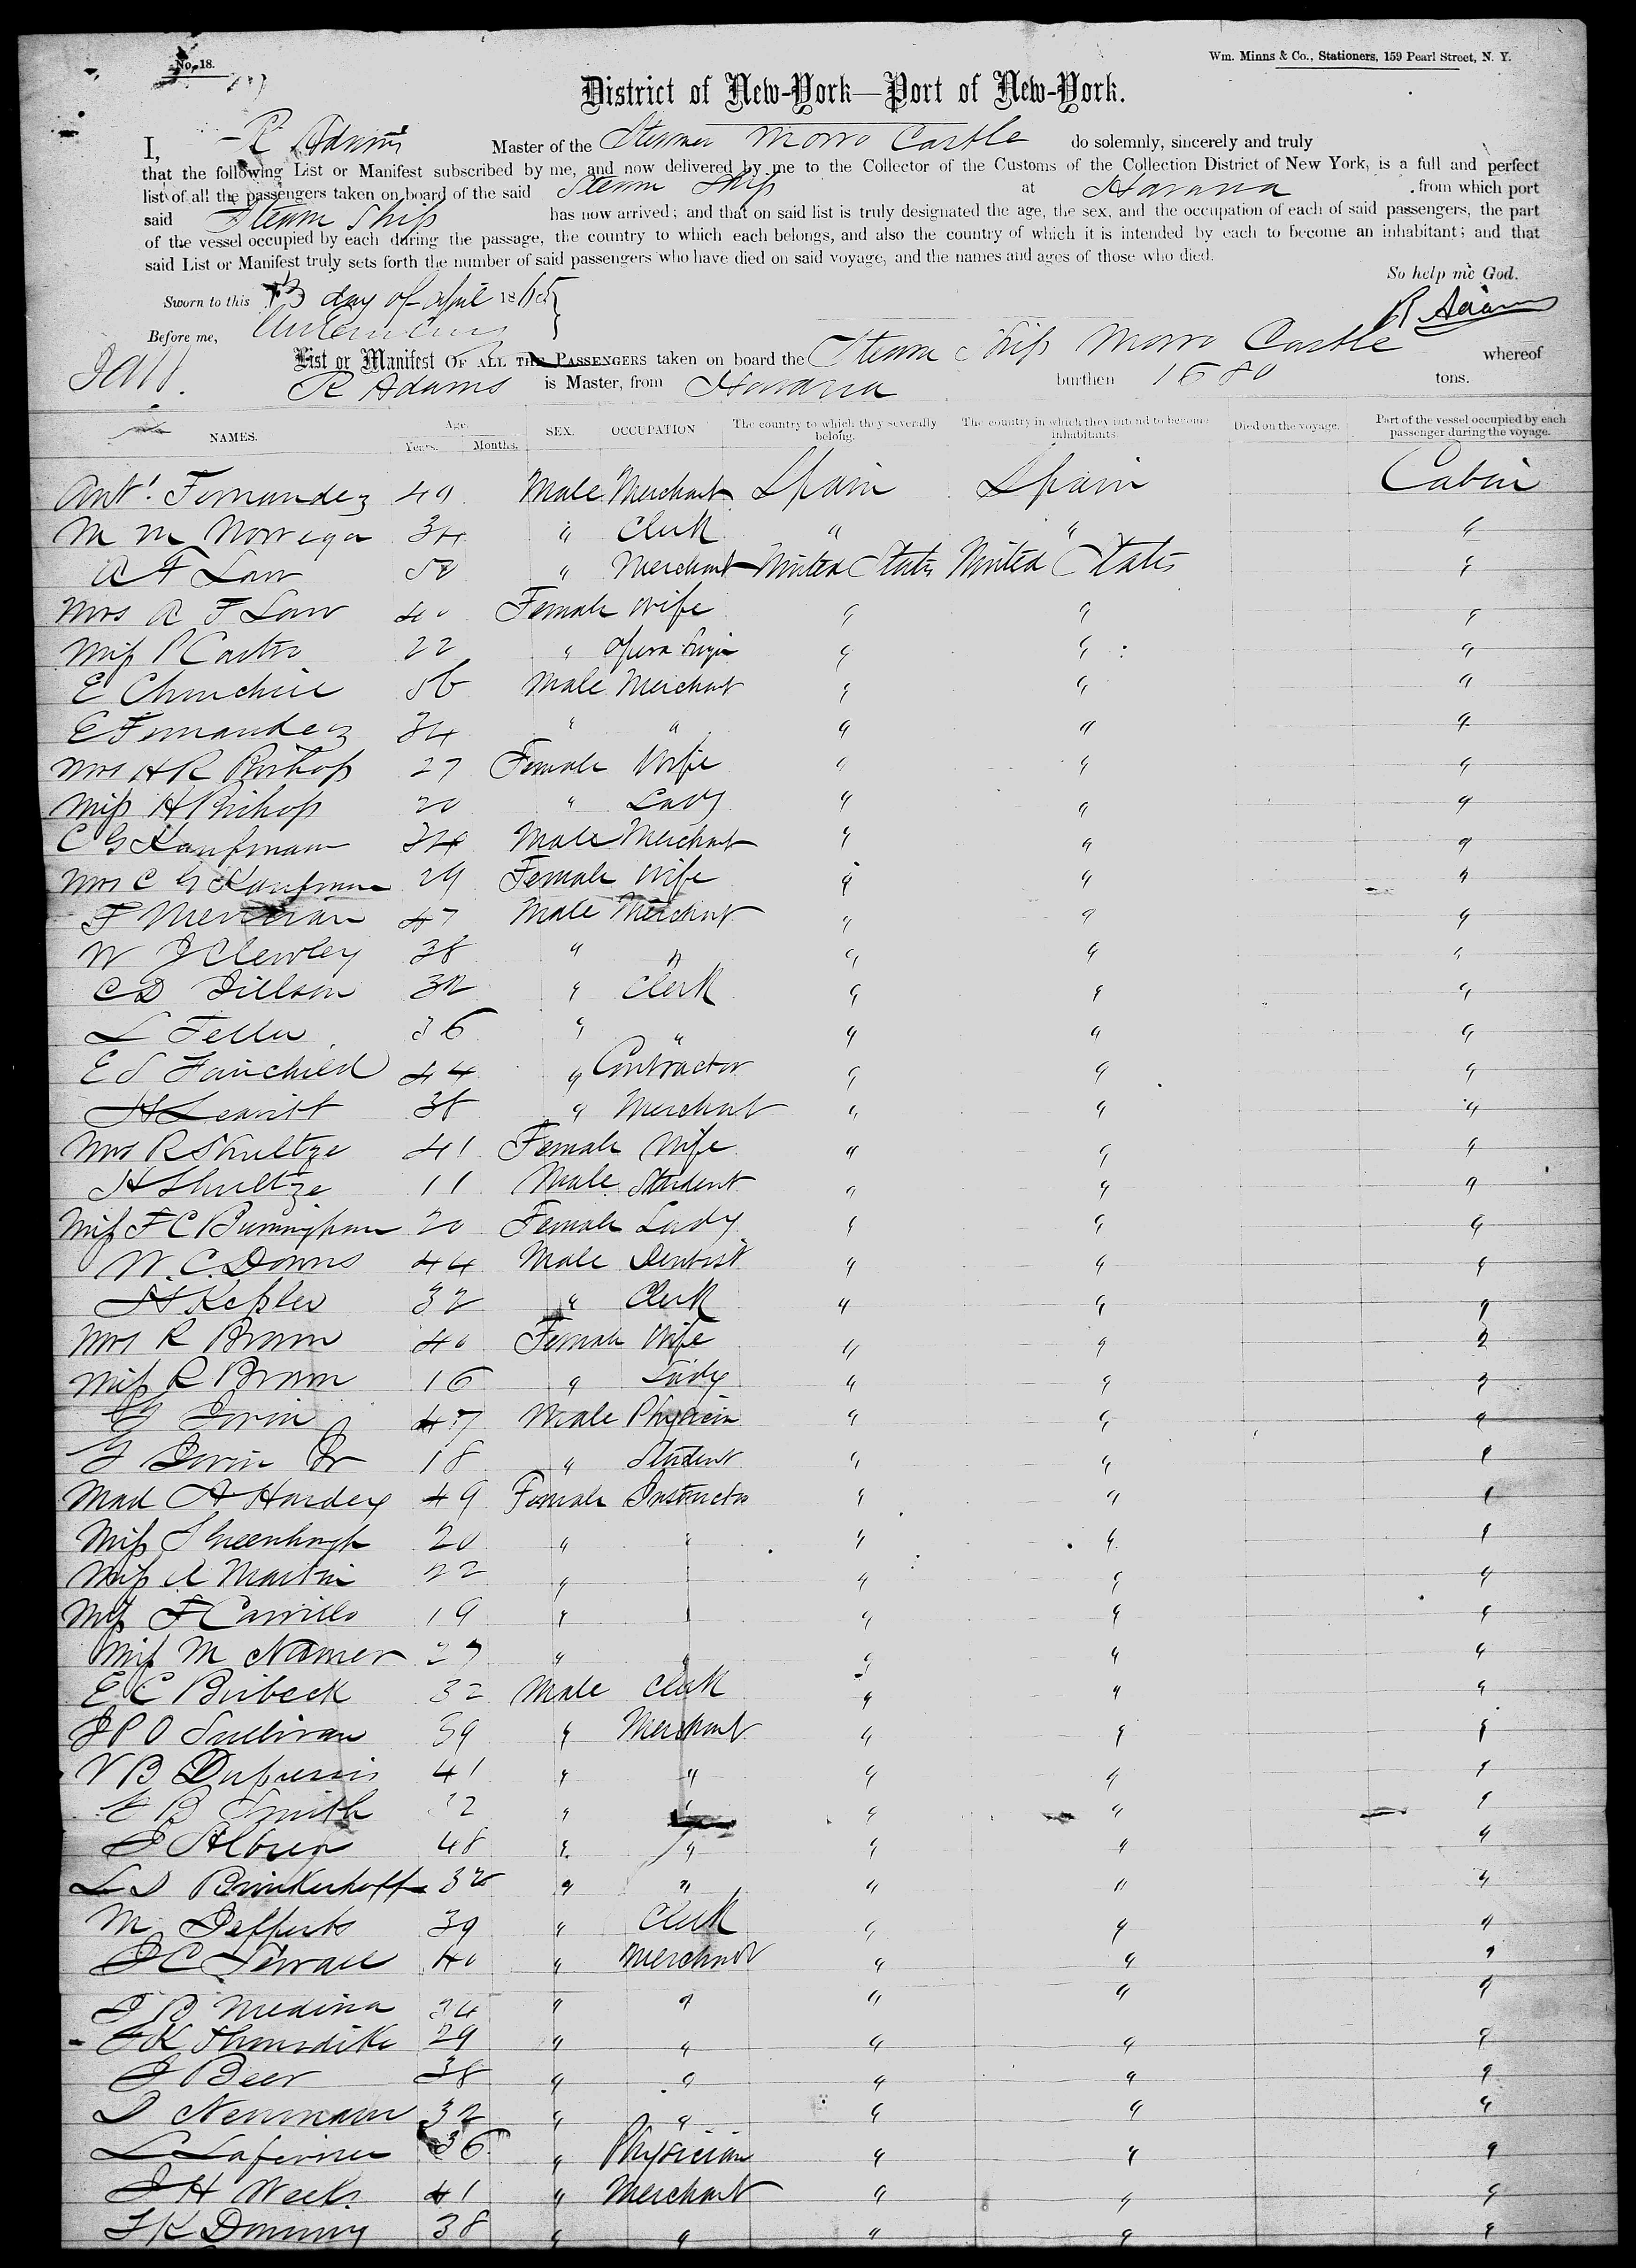 No. 18.
Wm. Minns & Co., Stationers, 159 Pearl Street, N. Y.
District of New-York—Port of New-York.
I, R Adams Master of the Steamer Morro Castle do solemnly, sincerely and truly
that the following List or Manifest subscribed by me, and now delivered by me to the Collector of the Customs of the Collection District of New York, is a full and perfect
list of all the passengers taken on board of the said Steam Ship at Havana from which port
said Steam Ship has now arrived; and that on said list is truly designated the age, the sex, and the occupation of each of said passengers, the part
of the vessel occupied by each during the passage, the country to which each belongs, and also the country of which it is intended by each to become an inhabitant; and that
said List or Manifest truly sets forth the number of said passengers who have died on said voyage, and the names and ages of those who died.
So help me God.
Sworn to this 13 day of April 1865
R Adams
Before me,
List or Manifest OF ALL THE PASSENGERS taken on board the Steam Ship Morro Castle whereof
R Adams is Master, from Havana burthen 1680 tons.
NAMES. Age. Years. Months. SEX. OCCUPATION The country to which they severally belong. The country in which they intend to become inhabitants Died on the voyage. Part of the vessel occupied by each passenger during the voyage.
Ant'. Fernandez 49 Male Merchant Spain Spain Cabin
M M Norrega 34 " Clerk " " "
A F Law 50 " Merchant United States United States "
Mrs A F Law 40 Female Wife " " "
Miss P Castro 22 " Opera " " "
E Churchill 56 Male Merchant " " "
E Fernandez 34 " " " " "
Mrs H R Bishop 27 Female Wife " " "
Miss H Bishop 20 " Lady " " "
C G Kaufmann 34 Male Merchant " " "
Mrs C G Kaufman 29 Female Wife " " "
F Merician 47 Male Merchant " " "
W J Clewley 38 " " " " "
C D Tillson 32 " Clerk " " "
L Feller 36 " " " " "
E S Fairchild 44 " Contractor " " "
H Leavitt 38 " Merchant " " "
Mrs R Shultze 41 Female Wife " " "
H Shultze 11 Male Student " " "
Miss F C Burmingham 20 Female Lady " " "
W. C. Downs 44 Male Dentist " " "
H Kessler 32 " Clerk " " "
Mrs R Brown 40 Female Wife " " "
Miss R Brown 16 " Lady " " "
Y Dorin 47 Male Physician " " "
Y Dorin Jr 18 " Student " " "
Mad A Hardey 49 Female Instructor " " "
Miss S Greenhough 20 " " " " "
Miss A Martin 22 " " " "
Miss F Carrillo 19 " " " " "
Miss M Namer 27 " " " " "
E C Birbeck 32 Male Clerk " " "
J P O Sullivan 39 " Merchant " " "
V B Dupierris 41 " " " " "
E B Smith 32 " " " " "
J Albren 48 " " " " "
L D Brinkerhoff 32 " " " " "
M Jefferts 39 " Clerk " " "
J C Terrall 40 " Merchant " " "
J B Medina 34 " " " " "
J K Thorndike 29 " " " " "
J Beer 38 " " " " "
D Newmann 32 " " " " "
L 36 " Physician " " "
J H Weeks 41 " Merchant " " "
38 " " " " "